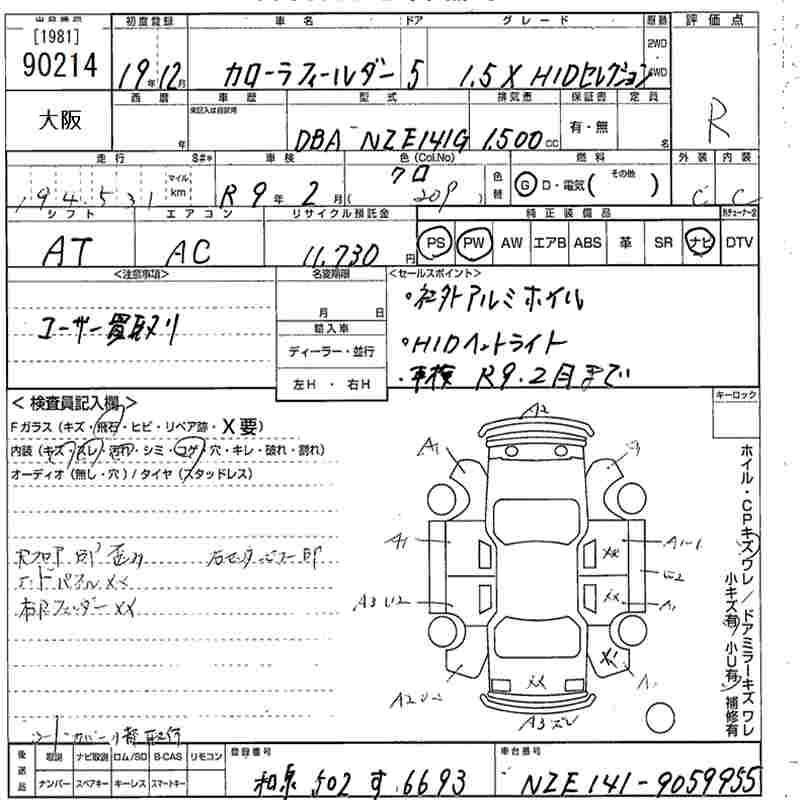 [1981]
90214
大阪
初度登録
19年12月
車名
カローラフィールダー
ドア
5
グレード
1.5X HIDセレクション
2WD
4WD
評価点
R
西暦
年
車歴
型式
DBA-NZE141G
排気量
1,500cc
保証書
有・無
定員
名
走行
マイル
km
194,531
車検
R9年2月
色(Col.No)
クロ
209
色替
燃料
G D・電気( その他 )
外装 内装
C C
シフト
AT
エアコン
AC
リサイクル預託金
11,730円
純正装備品
PS PW AW エアB ABS 革 SR ナビ DTV
<注意事項>
ユーザー買取り
名変期限
月 日
輸入車
ディーラー・並行
左H・右H
<セールスポイント>
・社外アルミホイル
・HIDヘットライト
・車検 R9.2月まで
キーロック
<検査員記入欄>
Fガラス(キズ・飛石・ヒビ・リペア跡・X要)
内装(キズ・スレ・汚れ・シミ・コゲ・穴・キレ・破れ・割れ)
オーディオ(無し・穴)/タイヤ(スタッドレス)
エンドパネルXX
フェンダーXX
A2
A1
A1
A3 U2
A2 U2
A1-1
XX
XX
A1
XX
A3
ホイル・CPキズワレ/ドアミラーキズワレ
小キズ有/小U有/補修有
後送品
取説 ナビ取説 ロム/SD B-CAS リモコン
ナンバー スペアキー キーレス スマートキー
登録番号
和泉 502 す 6693
車台番号
NZE141-9059955